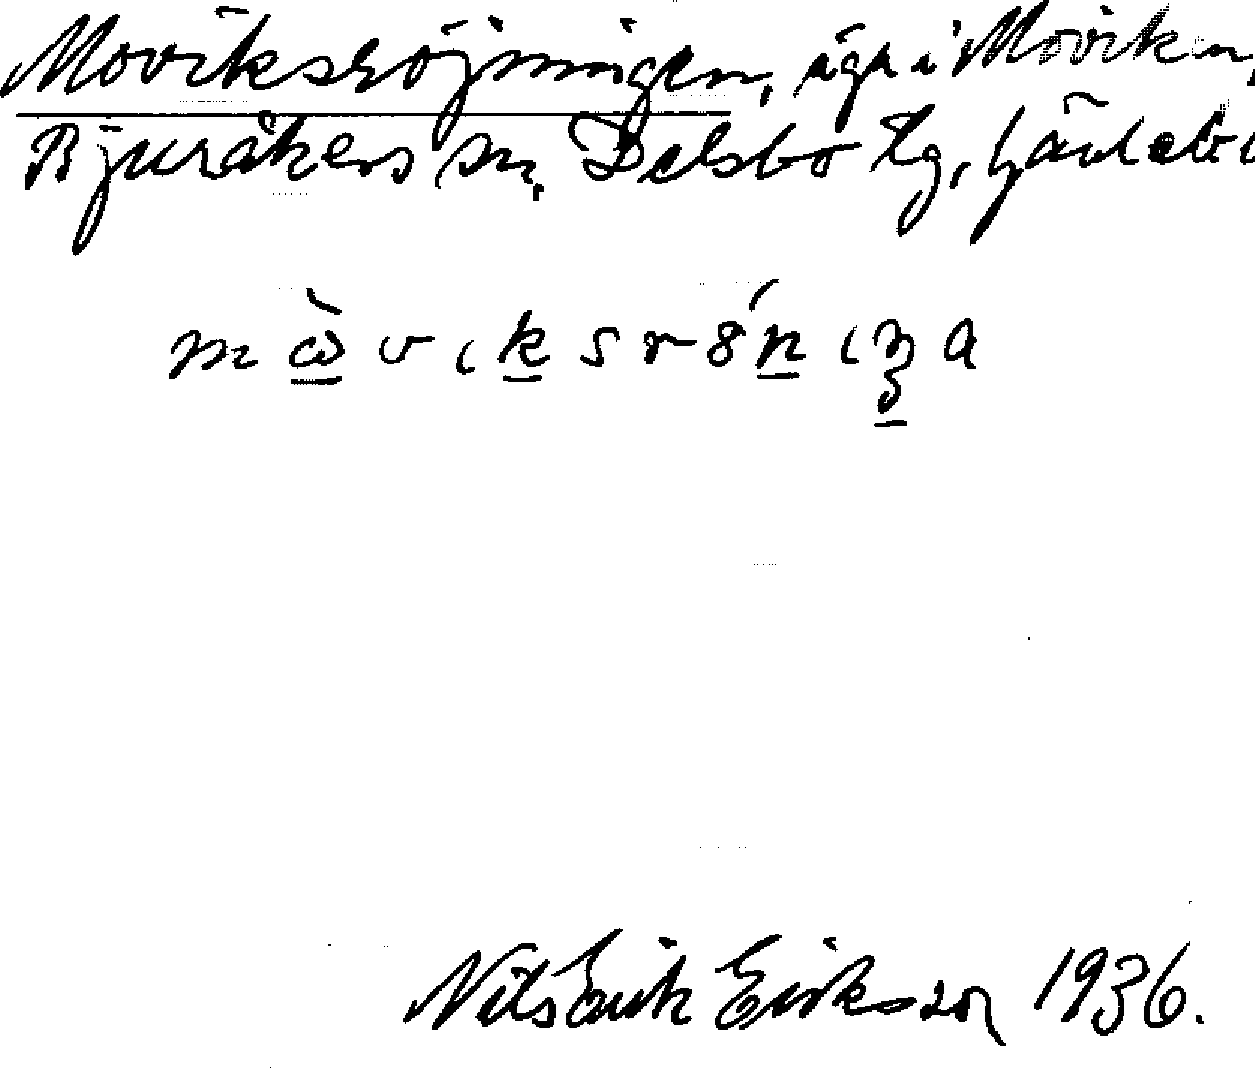 Moviksröjningen, äga i Moviken,
Bjuråkers sn, Delsbo tg, Gävlebo
Nils Erik Eriksson 1936.